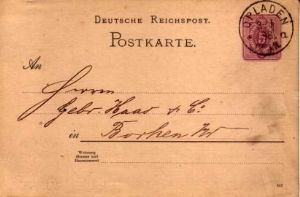 DEUTSCHE REICHSPOST.
POSTKARTE.
OPLADEN
An
Herren
Gebr. Haas & C.
in Borken
Wohnung
(Strasse und
Hausnummer)